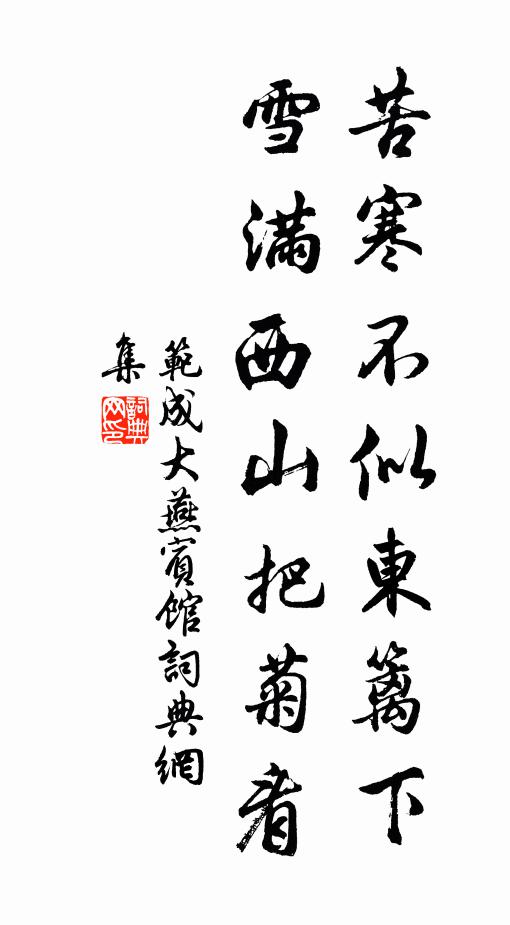 苦寒不似東籬下
雪滿西山把菊看
範成大燕賓館詞典網
集
詞典网印